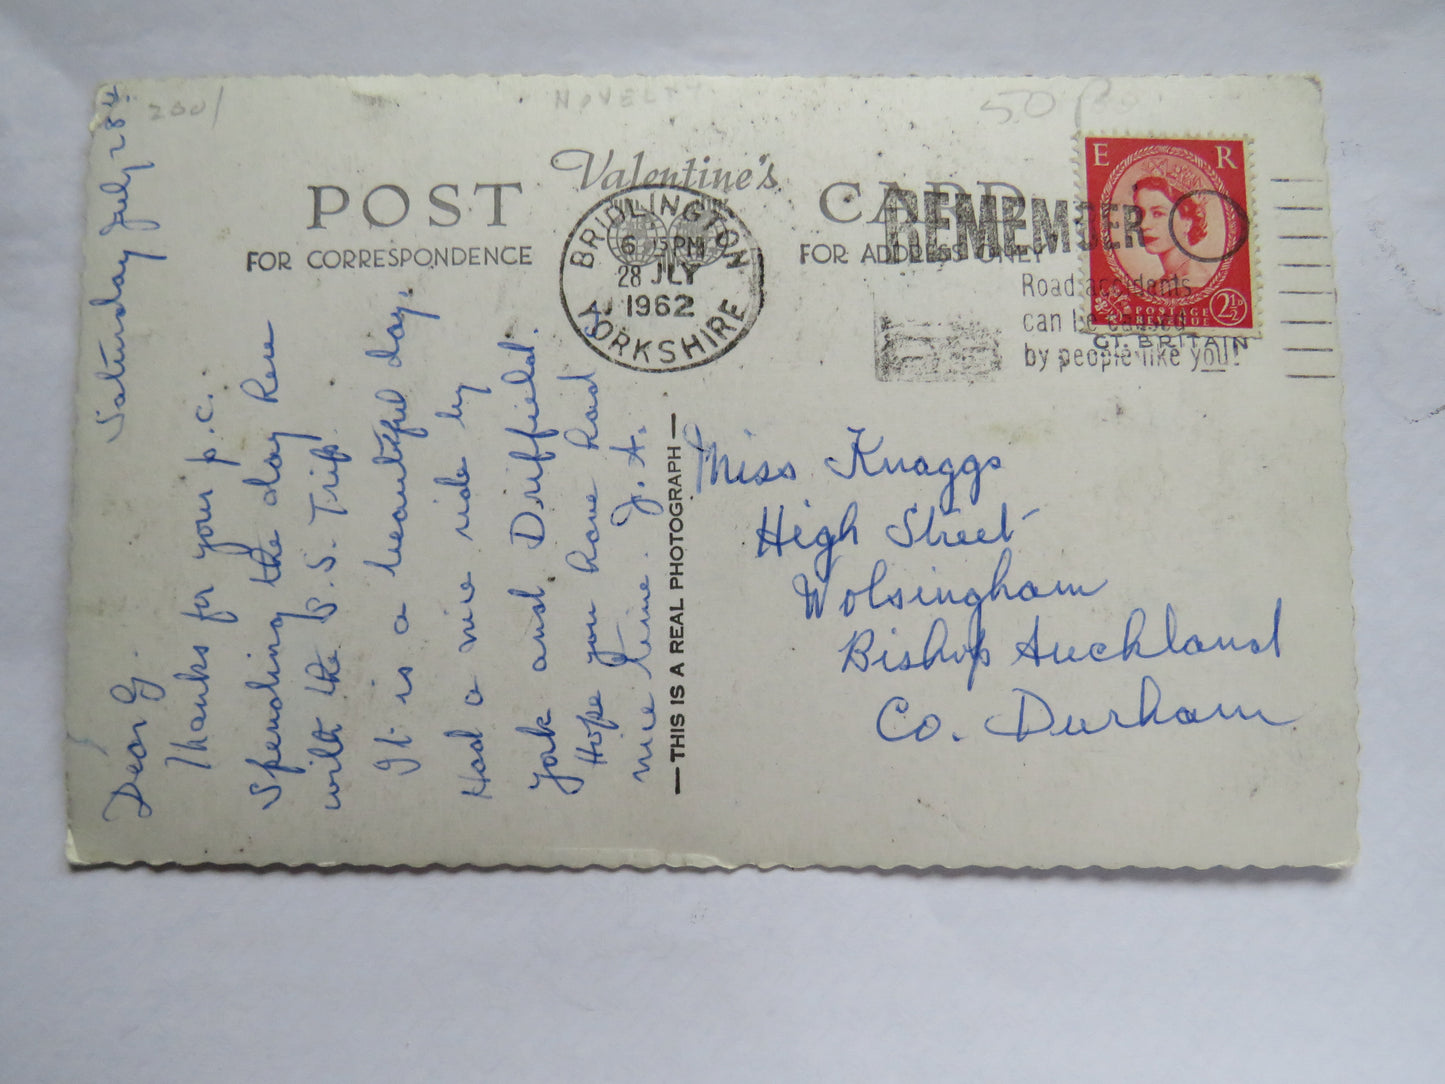 2001
NOVELTY
50p
POST
Valentine's
CARD
FOR CORRESPONDENCE
FOR ADDRESS ONLY
BRIDLINGTON
6 15 PM
28 JLY
1962
YORKSHIRE
REMEMBER
Road accidents
can be caused
by people like you!
E R
POSTAGE
REVENUE
2½D
GT. BRITAIN
Saturday July 28th
Dear G.
Thanks for your p.c.
Spending the day here
with the S.S. Trip.
It is a beautiful day.
Had a nice ride by
York and Driffield.
Hope you have had
nice time. J. A.
THIS IS A REAL PHOTOGRAPH
Miss Knaggs
High Street
Wolsingham
Bishop Auckland
Co. Durham